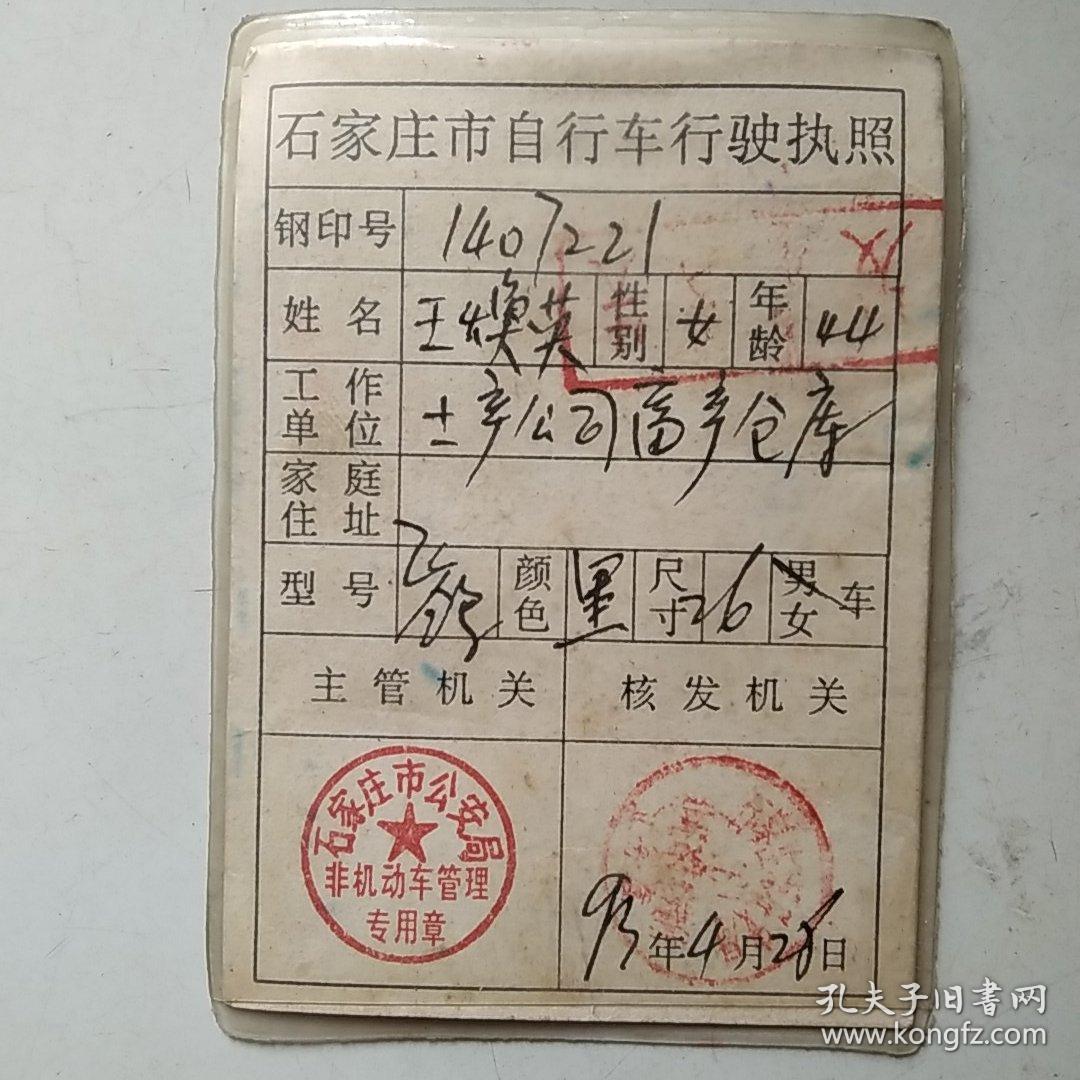 石家庄市自行车行驶执照
钢印号 1407221
姓名 王焕英 性别 女 年龄 44
工作单位 土产公司畜产仓库
家庭住址
型号 颜色 黑 尺寸 26 男女车
主管机关 核发机关
石家庄市公安局
非机动车管理
专用章
93年4月28日
孔夫子旧书网
www.kongfz.com